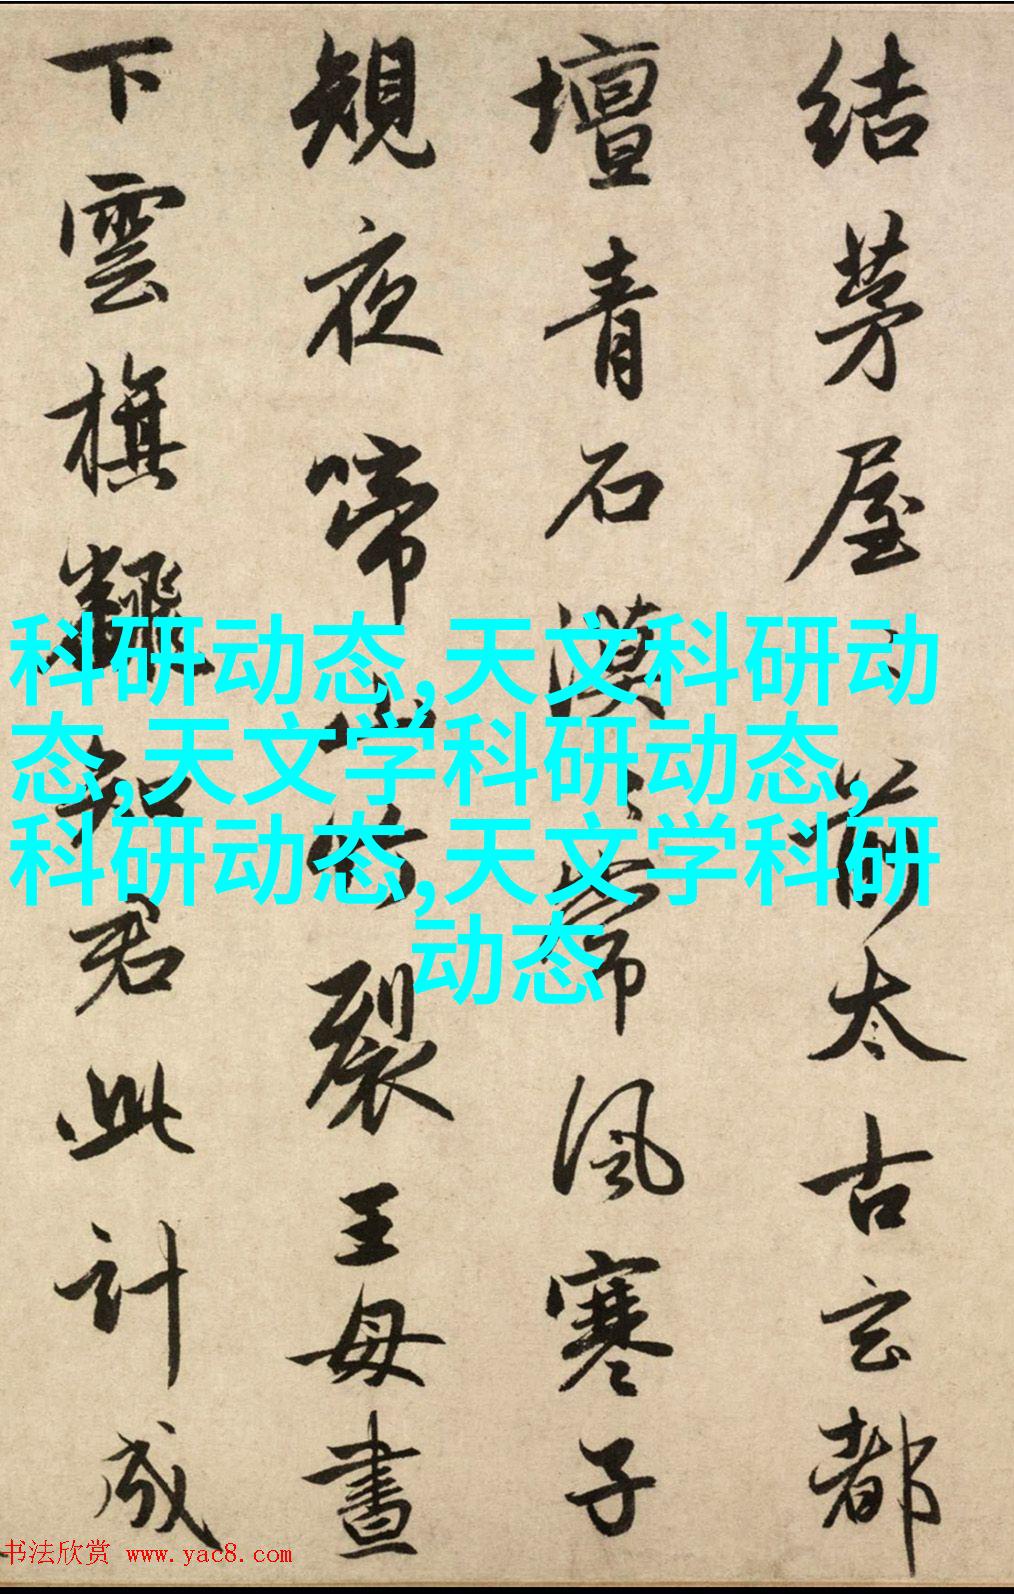 結茅屋〻前太古玄都
壇青石漠〻常風寒子
規夜啼山竹裂王母晝
下雲旗翻知君此計成
科研动态,天文科研动
态,天文学科研动态,
科研动态,天文学科研
动态
书法欣赏 www.yac8.com